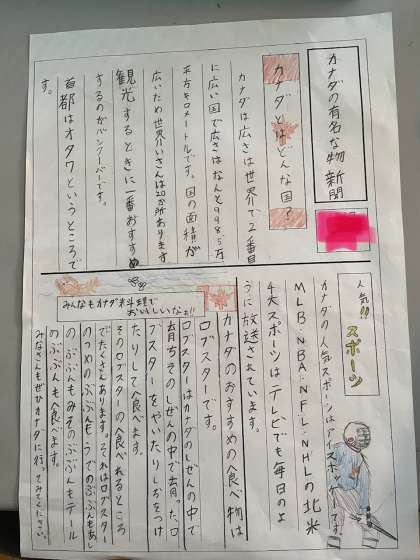 カナダの有名な物新聞
カナダとはどんな国?
カナダは広さは世界で2番目
に広い国で広さはなんと998.5万
平方キロメートルです。国の面積が
広いため世界いさんは20か所あります
観光するときに一番おすすめ
するのがバンクーバーです。
首都はオタワというところで
す。
人気!!
スポーツ
カナダの人気スポーツはアイスホッケーです!
MLB・NBA・NFL・NHLの北米
4大スポーツはテレビでも毎日のよ
うに放送されています。
みんなもカナダ料理で
おいしいなぁ!!
カナダのおすすめの食べ物は
ロブスターです。
ロブスターはカナダのしぜんの中で
育ちそのしぜんの中で育ったロ
ブスターをやいたりしおをつけ
たりして食べます。
そのロブスターの食べれるところ
でたくさんあります。それはロブスター
のつめのぶぶんもうでのぶぶんもあし
のぶぶんもみそのぶぶんもテール
のぶぶんも食べます。
みなさんもぜひカナダに行ってみてください。